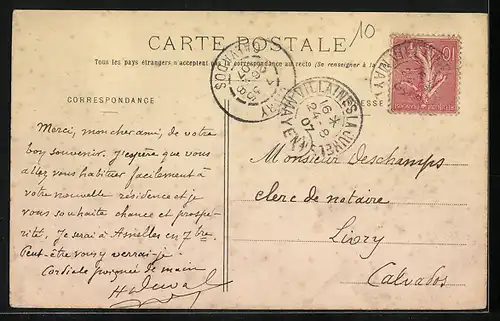 10
CARTE POSTALE
Tous les pays étrangers n'acceptent pas la correspondance au recto (Se renseigner à la
CORRESPONDANCE
ESSE
VILLAINES-LA-JUHEL
16
24 - 8
07
MAYENNE
CALVADOS
10
Merci, mon cher ami, de votre
bon souvenir. J'espère que vous
allez vous habituer facilement à
votre nouvelle résidence et je
vous souhaite chance et prospé-
rité. Je serai à Asnelles en 7bre.
Peut-être vous y verrai-je !
Cordiale poignée de main
HDuval
Monsieur Deschamps
clerc de notaire
Livry
Calvados